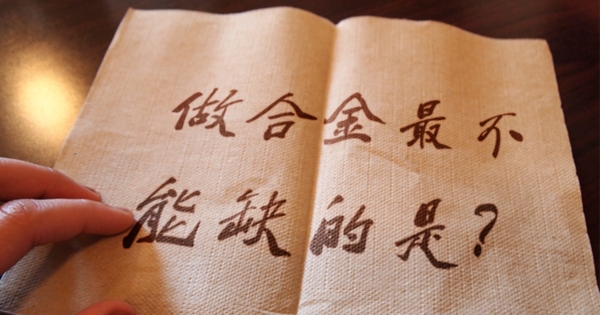 做合金最不
能缺的是?